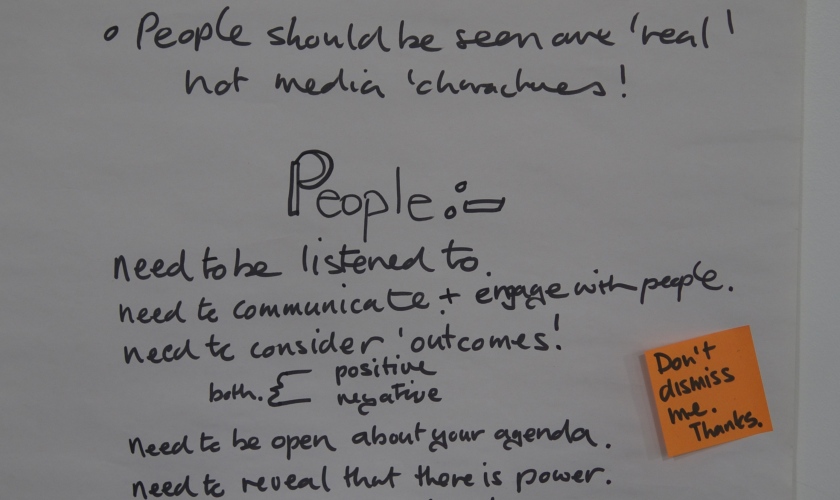 o People should be seen are 'real'
not media 'charachues!
People :-
need to be listened to.
need to communicate + engage with people.
need to consider 'outcomes!
both. { positive
negative
need to be open about your agenda.
need to reveal that there is power.
Don't
dismiss
me.
Thanks.